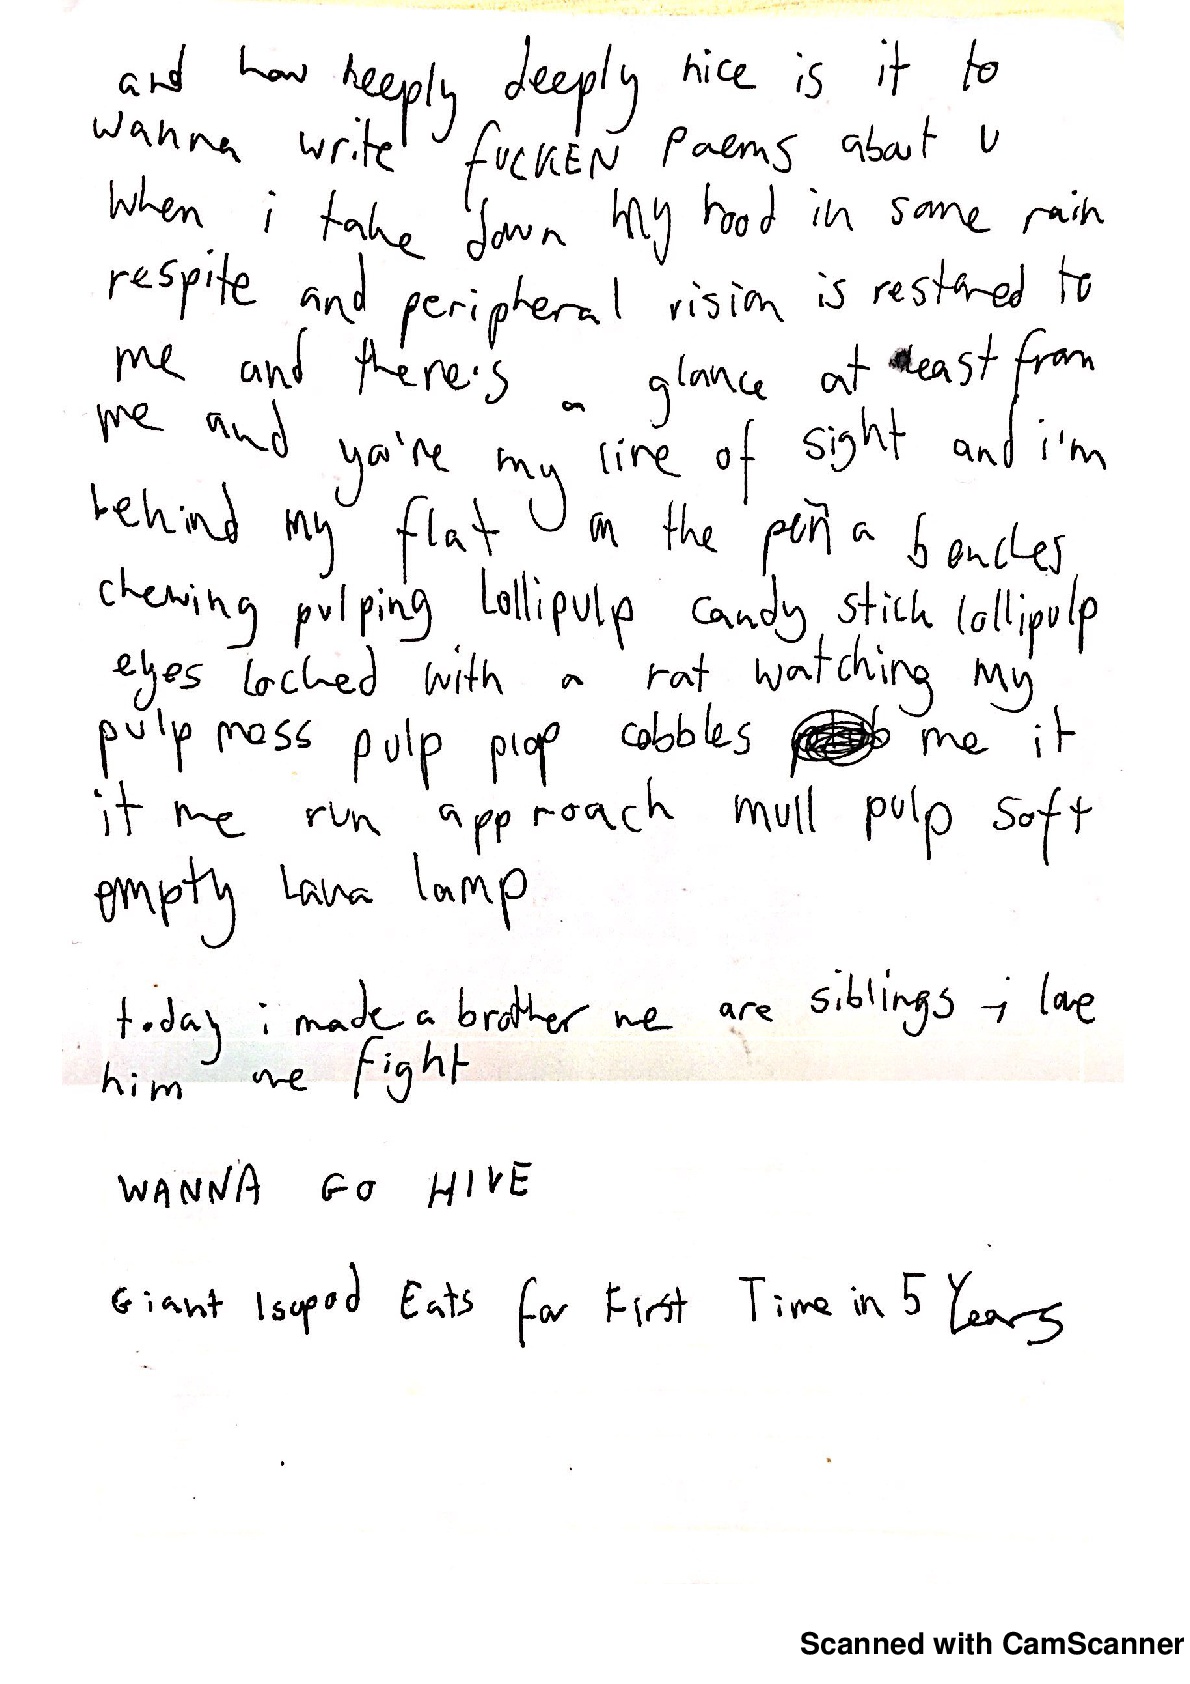 and how heeply deeply nice is it to
wanna write fUCKEN poems about u
when i take down my hood in some rain
respite and peripheral vision is restored to
me and there's a glance at east from
me and you're my line of sight and i'm
behind my flat on the peñ a boucles
chewing pulping lollipulp candy stick lollipulp
eyes locked with a rat watching my
pulp mass pulp plop cobbles me it
it me run approach mull pulp soft
empty lava lamp
today i made a brother we are siblings i love
him we fight
WANNA GO HIVE
Giant Isopod Eats for First Time in 5 Years
Scanned with CamScanner